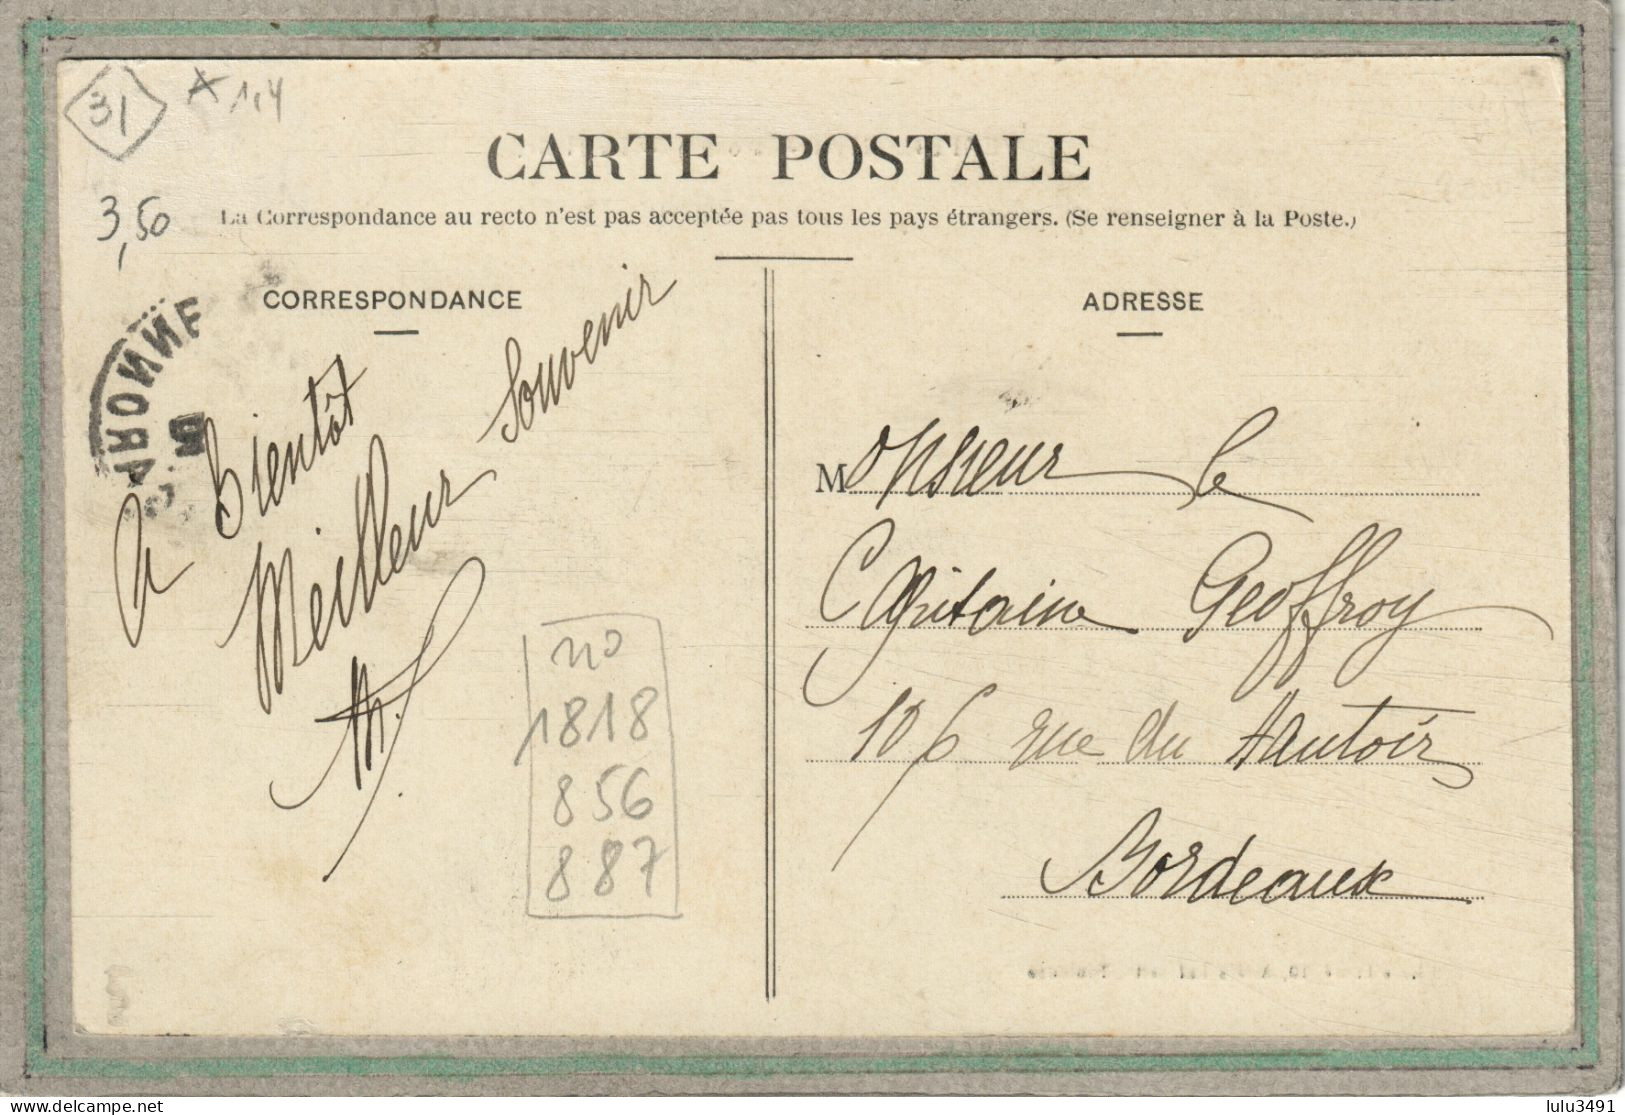 31
1,4
CARTE POSTALE
3,50
La Correspondance au recto n'est pas acceptée pas tous les pays étrangers. (Se renseigner à la Poste.)
CORRESPONDANCE
ADRESSE
A bientôt
Meilleur Souvenir
Monsieur le
Capitaine Geoffroy
106 rue du Hautoir
Bordeaux
no
1818
856
887
Delcampe.net
lulu3491